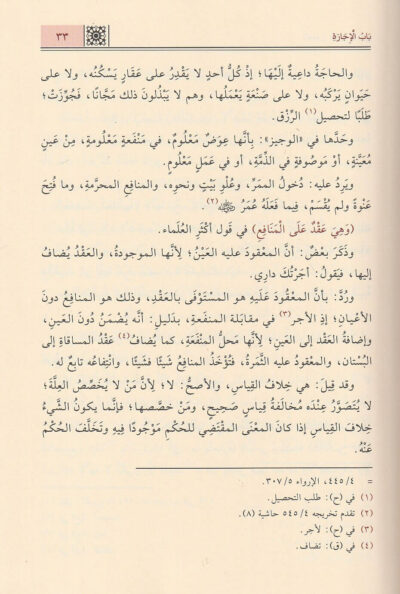 بَابُ الْإِجَارَةِ
٣٣
والحاجَةُ داعِيةٌ إِلَيْهَا؛ إذ كُلُّ أحدٍ لا يَقْدِرُ على عَقَارٍ يَسْكُنُه، ولا على
حَيَوانٍ يَرْكَبُه، ولا على صَنْعَةٍ يَعْمَلُها، وهم لا يَبْذُلونَ ذلك مَجَّانًا، فجُوِّزَتْ؛
طَلَبًا لتحصيلِ(١) الرِّزْق.
وحَدَّها في «الوجيز»: بِأَنَّها عِوَضٌ مَعْلُومٌ، في مَنْفَعةٍ مَعْلُومةٍ، مِنْ عَينٍ
مُعَيَّنةٍ، أوْ مَوصُوفةٍ في الذِّمَّةِ، أو في عَمَلٍ مَعْلُومٍ.
ويَرِدُ عليه: دُخُولُ الممَرِّ، وعُلْوِ بَيْتٍ ونحوِه، والمنافِعِ المحرَّمةِ، وما فُتِحَ
عَنْوةً ولم يُقْسَمْ، فِيما فَعَلَهُ عُمَرُ ﷺ(٢).
(وَهِيَ عَقْدٌ عَلَى الْمَنَافِعِ) في قَولِ أكْثَرِ العُلَماء.
وذَكَرَ بعضٌ: أنَّ المعْقودَ عليه العَيْنُ؛ لأِنَّها الموجودةُ، والعَقْدُ يُضافُ
إليها، فيَقولُ: آجَرْتُكَ دارِي.
ورُدَّ: بأنَّ المعْقُودَ عَلَيهِ هو المسْتَوْفَى بالعَقْدِ، وذلك هو المنافِعُ دونَ
الأعْيانِ؛ إذ الأجر(٣) في مقابَلة المنفَعةِ، بدَليلِ: أنَّه يُضْمَنُ دُونَ العَينِ،
وإضافةُ العَقْد إلى العَينِ؛ لأِنَّها محَلُّ المنْفَعَةِ، كما يُضافُ(٤) عَقْدُ المساقاةِ إلى
البُسْتان، والمعْقُودُ عليه الثَّمَرةُ، فتُؤْخَذُ المنافِعُ شَيئًا فشَيئًا، وانْتِفاعُه تابِعٌ له.
وقد قِيلَ: هي خِلافُ القِياسِ، والأصحُّ: لا؛ لِأنَّ مَنْ لا يُخَصِّصُ العِلَّةَ؛
لا يُتَصَوَّرُ عِنْدَه مُخالَفةُ قِياسٍ صَحيحٍ، ومَنْ خصَّصها؛ فإنَّما يكونُ الشَّيءُ
خِلافَ القِياسِ إذا كانَ المعْنَى المقْتَضِي للحُكْمِ مَوْجُودًا فِيهِ وتَخَلَّفَ الحُكْمُ
عَنْهُ.
= ٤/٤٤٥، الإرواء ٥/٣٠٧.
(١) في (ح): طلب التحصيل.
(٢) تقدم تخريجه ٤/٥٤٥ حاشية (٨).
(٣) في (ح): لأجر.
(٤) في (ق): تضاف.